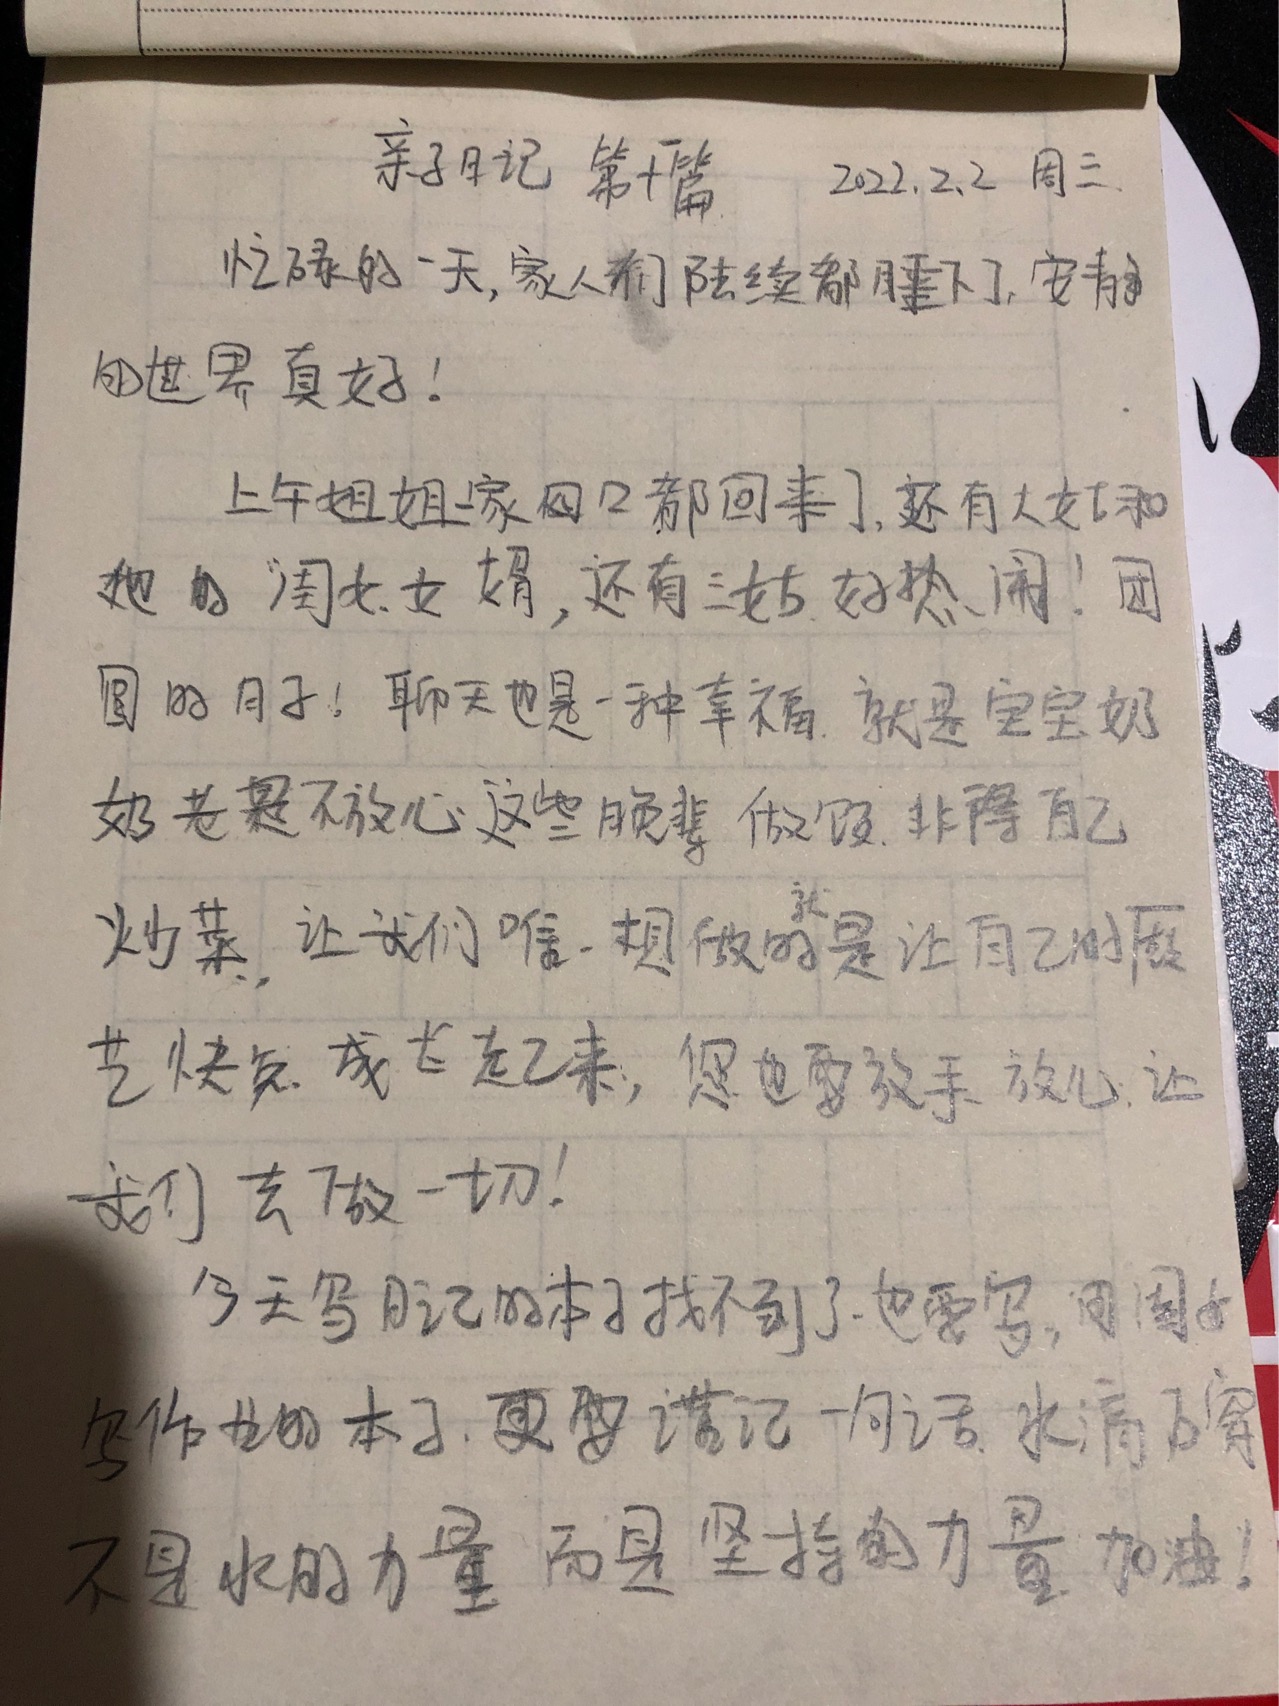 亲子日记 第十篇 2022.2.2 周三.
忙碌的一天,家人们陆续都睡下了,安静
的世界真好!
上午姐姐一家四口都回来了,还有大姑和
她的闺女、女婿,还有三姑.好热闹!团
圆的日子!聊天也是一种幸福.就是宝宝奶
奶老是不放心这些晚辈做饭.非得自己
炒菜,让我们唯一想做的就是让自己的厨
艺快点成长起来,您也要放手放心.让
我们去做一切!
今天写日记的本子找不到了.也要写,用闺女
写作业的本子.更要谨记一句话.水滴石穿
不是水的力量而是坚持的力量.加油!